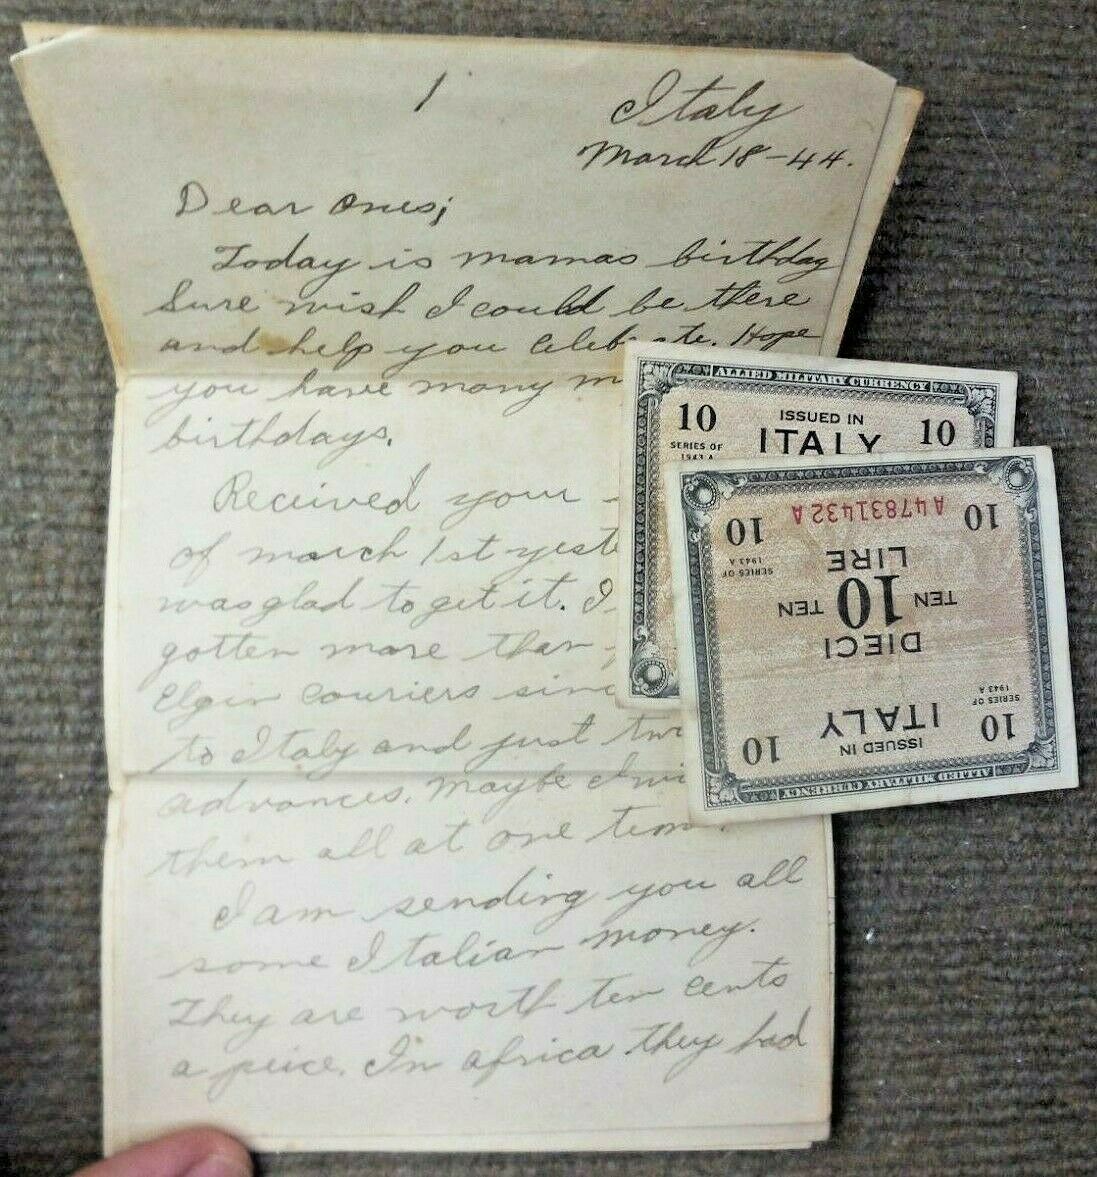 1
Italy
March 18-44.
Dear Ones;
Today is mamas birthday
Sure wish I could be there
and help you celebrate. Hope
you have many
birthdays.
Received your
of march 1st
was glad to get it. I
gotten more than
Elgin Couriers
to Italy and just
advances. Maybe I
them all at one
I am sending you all
some Italian money.
They are worth ten cents
a peice. In africa they had
ALLIED MILITARY CURRENCY
10 ISSUED IN 10
SERIES OF ITALY
1943 A
ALLIED MILITARY CURRENCY
10 ISSUED IN 10
SERIES OF ITALY
1943 A
DIECI
TEN 10 TEN
LIRE SERIES OF
1943 A
10 A47831432A 10